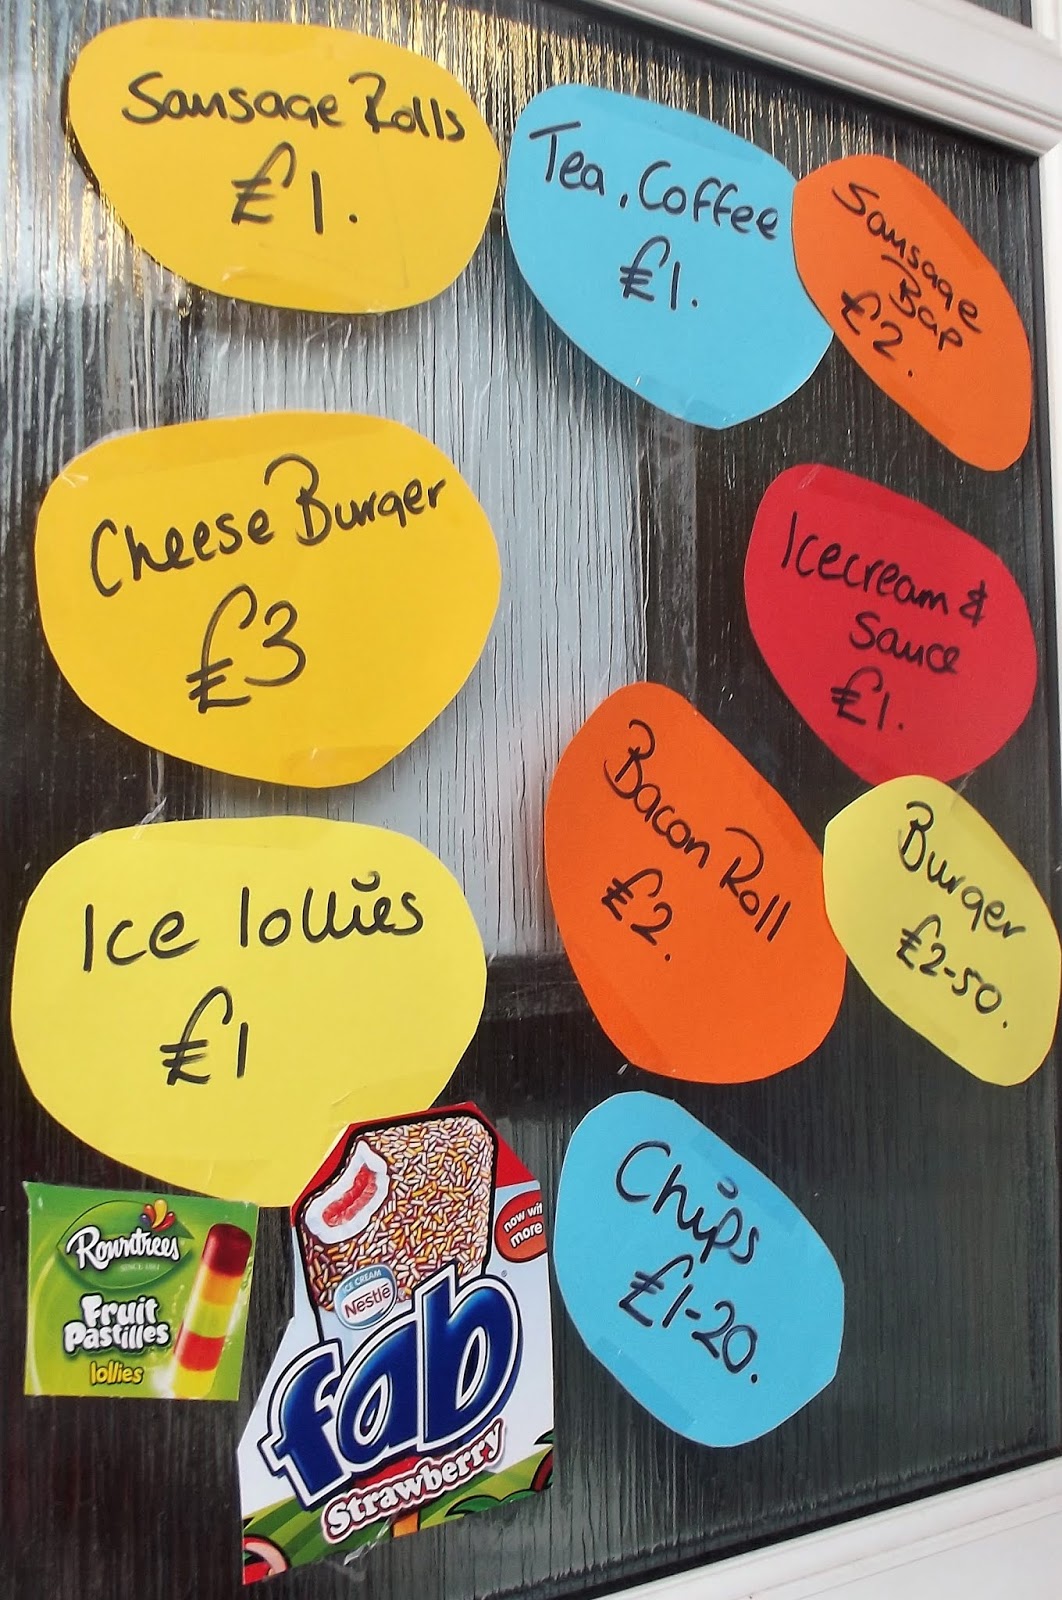 Sausage Rolls
£1.
Tea, Coffee
£1.
Sausage
Bap
£2.
Cheese Burger
£3
Icecream &
Sauce
£1.
Bacon Roll
£2.
Burger
£2-50.
Ice lollies
£1
Chips
£1-20.
Rowntrees
SINCE 1881
Fruit
Pastilles
lollies
now with
more
ICE CREAM
Nestle
fab
Strawberry